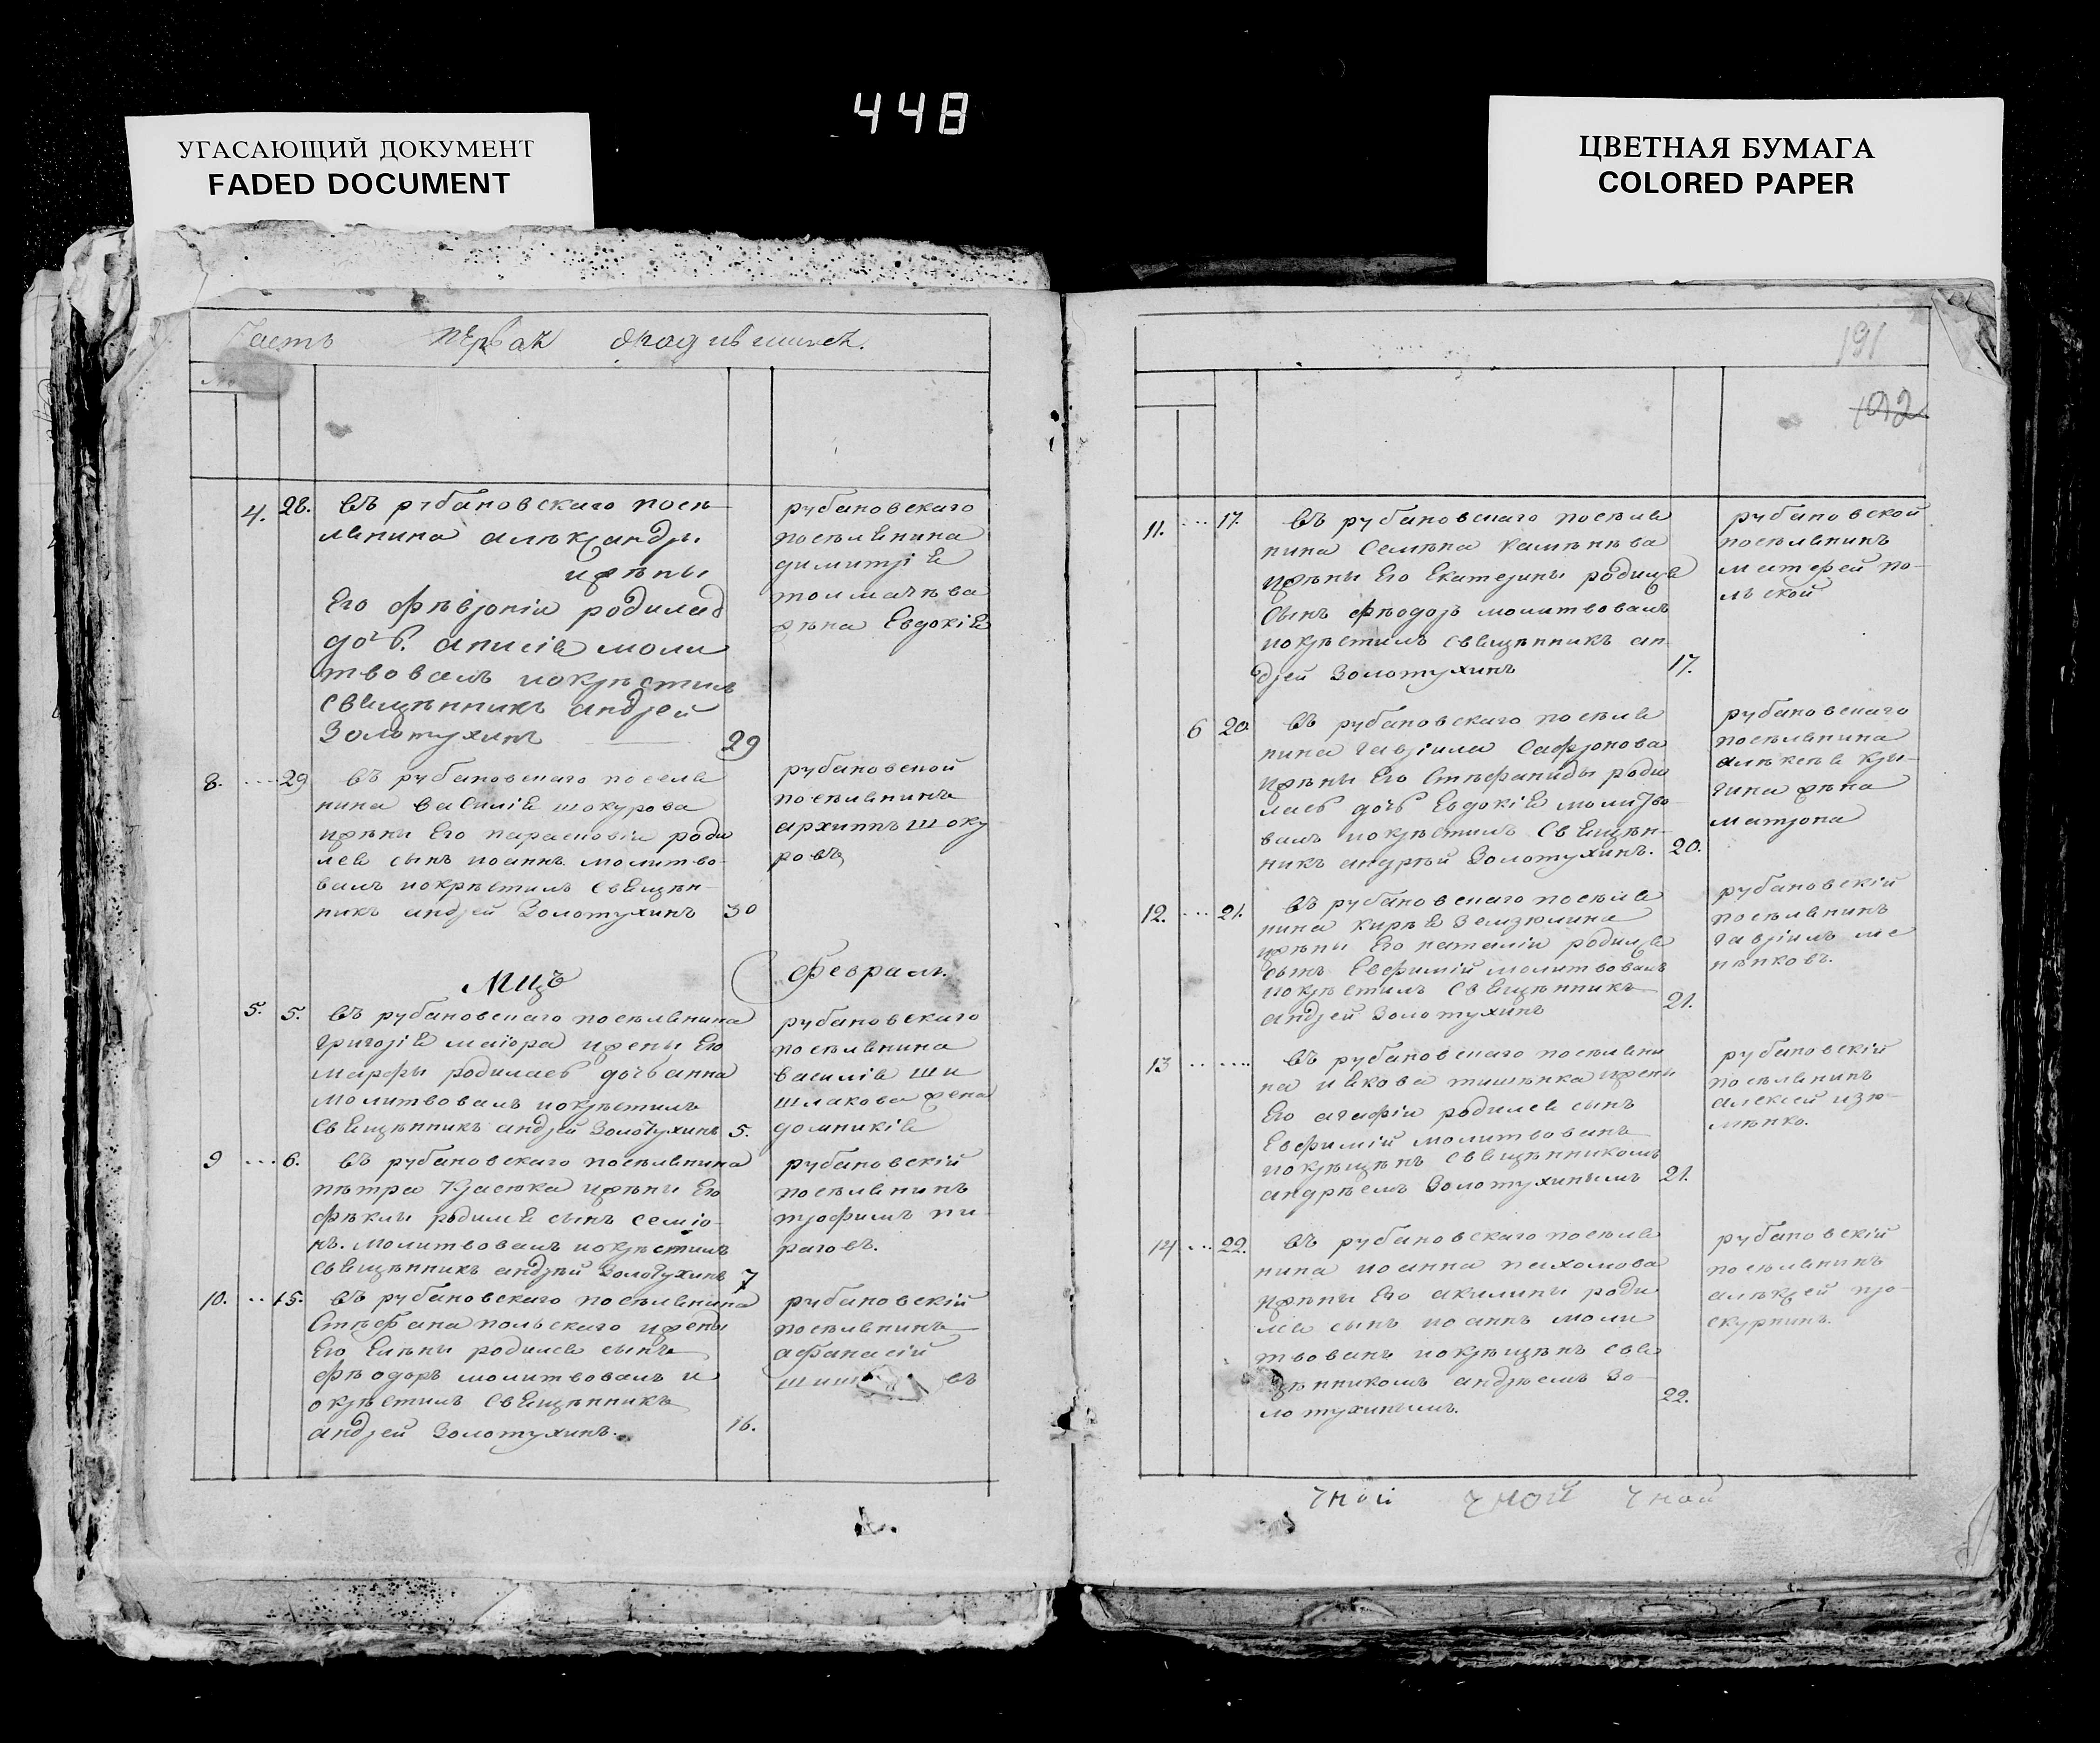 448
УГАСАЮЩИЙ ДОКУМЕНТ
FADED DOCUMENT
ЦВЕТНАЯ БУМАГА
COLORED PAPER
Часть первая
4. 28. въ рубановскаго посѣ
лянина
Его родилась
дочь моли
твовалъ покрѣстилъ
свящѣнникъ андрей
Золотухинъ 29
рубановскаго
посѣлянина
димитрія
толмачѣва
жѣна Евдокія
8. 29 въ рубановскаго поселя
нина василія шокурова
ижѣны Его парасковіи роди
лся сынъ иоаннъ молитво
валъ покрѣстилъ свящѣн
никъ андрей Золотухинъ 30
рубановской
посѣлянинъ
архиппъ шоку
ровъ
Мцъ Февраль
5. 5. въ рубановскаго посѣлянина
григорія маіора ижены Его
марфы родилась дочь анна
молитвовалъ покрѣстилъ
свящѣнникъ андрей Золотухинъ 5.
рубановскаго
посѣлянина
василія ши
шлакова жена
домникія
9 6. въ рубановскаго посѣлянина
пѣтра ижѣны Его
фѣклы родился сынъ семіо
нъ. молитвовалъ покрѣстилъ
свящѣнникъ андрѣй Золотухинъ 7
рубановскій
посѣлянинъ
трофимъ пи
раговъ.
10. 15. въ рубановскаго посѣлянина
Стѣфана польскаго ижены
Его Елѣны родился сынъ
фѣодоръ молитвовалъ и
окрѣстилъ свящѣнникъ
андрей Золотухинъ. 16.
рубановскій
посѣлянинъ
афанасій
191
192
11. 17. въ рубановскаго посѣля
нина Семѣна камѣнѣва
ижѣны Его Екатерины родился
сынъ фѣодоръ молитвовалъ
покрѣстилъ свящѣнникъ ан
дрей Золотухинъ 17.
рубановской
посѣлянинъ
матфей по-
льской
6 20 въ рубановскаго посѣля
нина гавріила Сафронова
ижѣны Его Стѣфаниды роди
лась дочь Евдокія молитво
валъ покрѣстилъ Свящѣн-
никъ андрѣй Золотухинъ. 20.
рубановскаго
посѣлянина
гина жѣна
матрона
12. 21. въ рубановскаго посѣля
нина кирѣя
ижѣны Его наталіи родился
сынъ Евфимій молитвовалъ
покрѣстилъ Свящѣнникъ
андрей Золотухинъ 21.
рубановскій
посѣлянинъ
гавріилъ ме
нѣковъ.
13 въ рубановскаго посѣляни
на иякова тишѣнка ижены
Его агафіи родился сынъ
Евфимій молитвованъ
покрѣщѣнъ свящѣнникомъ
андрѣемъ Золотухинымъ 21.
рубановскій
посѣлянинъ
алексей
14 22. въ рубановскаго посѣля
нина иоанна пахомова
ижѣны Его акилины роди
лся сынъ иоаннъ моли
твованъ покрѣщѣнъ свя
щѣнникомъ андрѣемъ Зо-
лотухинымъ. 22.
рубановскій
посѣлянинъ
алѣксей про-
скурнинъ.